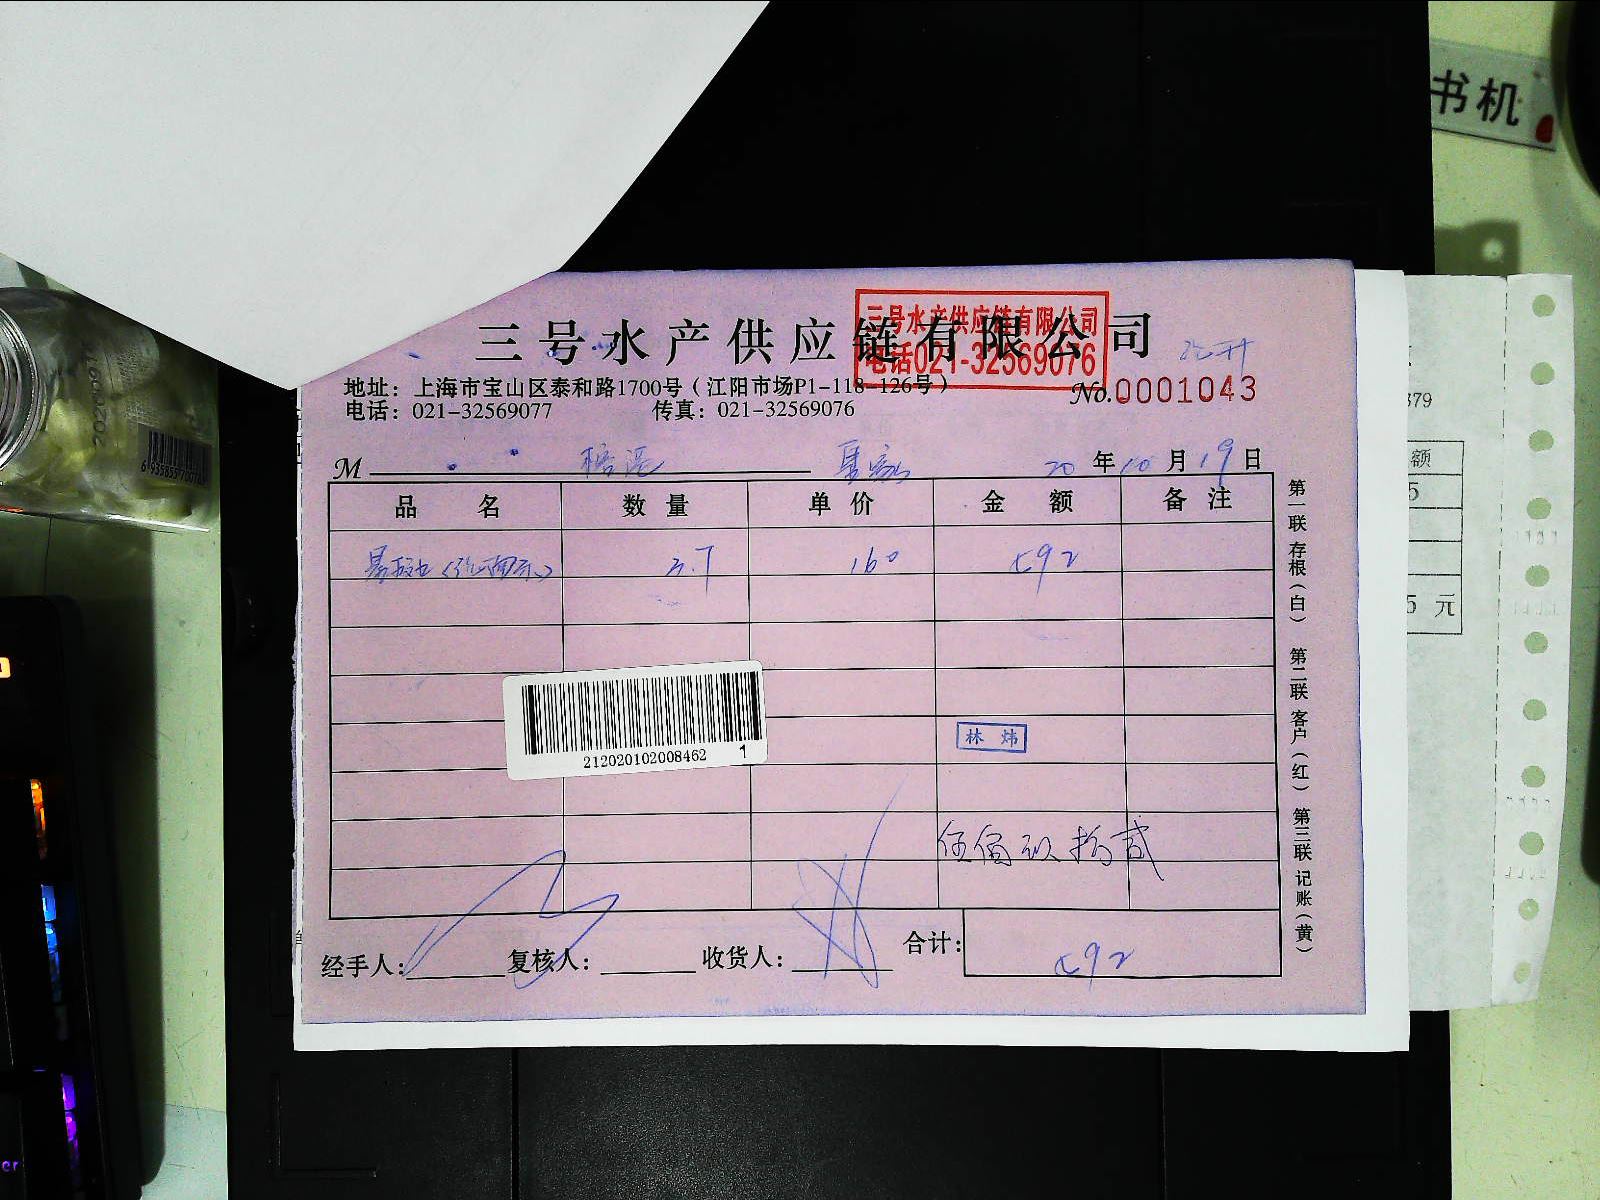 书机
三号水产供应链有限公司
三号水产供应链有限公司
电话021-32569076
地址：上海市宝山区泰和路1700号（江阳市场P1-118-126号）
No.0001043
电话：021-32569077 传真：021-32569076
M 20年10月19日
品名 数量 单价 金额 备注
3.7 160 592
林炜
212020102008462 1
伍佰玖拾贰
经手人： 复核人： 收货人： 合计： 592
第一联 存根（白） 第二联 客户（红） 第三联 记账（黄）
379
额
5
5 元
202009
6 935855 700